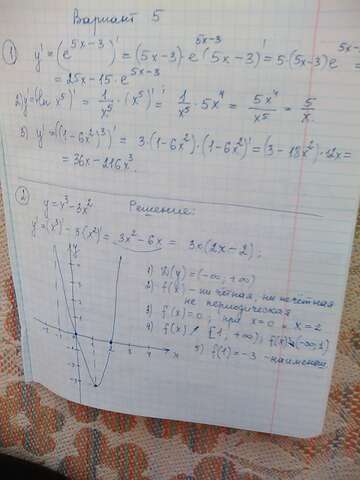 Вариант 5
① y' = (e^(5x-3))' = (5x-3)·e^(5x-3)(5x-3)' = 5·(5x-3)e^(5x-3) =
= 25x-15·e^(5x-3)
2) y' = (ln x⁵)' = 1/x⁵ · (x⁵)' = 1/x⁵ · 5x⁴ = 5x⁴/x⁵ = 5/x.
3) y' = ((1-6x²)³)' = 3·(1-6x²)·(1-6x²)' = (3-18x²)·12x =
= 36x-216x³.
② y = x³-3x² Решение:
y' = (x³)'-3(x²)' = 3x²-6x = 3x(2x-2);
1) D(y) = (-∞, +∞)
2) f(x) - ни чётная, ни нечётная
не периодическая
3) f'(x)=0; при x=0 и x=2
4) f(x) ↗ [1, +∞); f(x) ↘ (-∞,1)
5) f(1) = -3
y
x